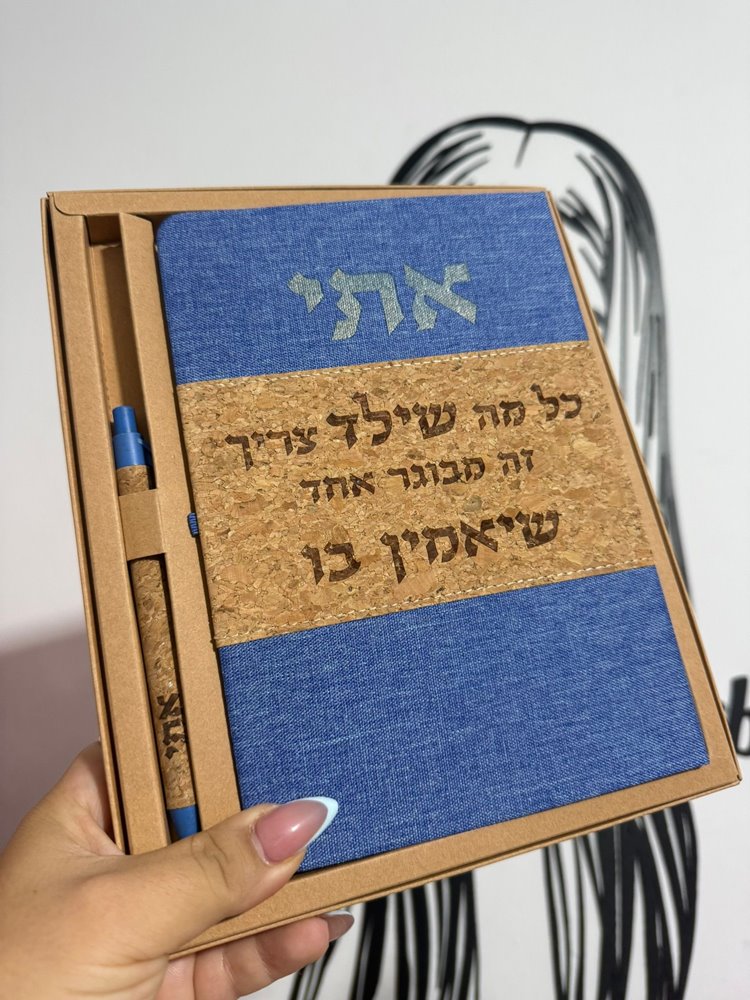 אתי
כל מה שילד צריך
זה מבוגר אחד
שיאמין בו
אתי
b